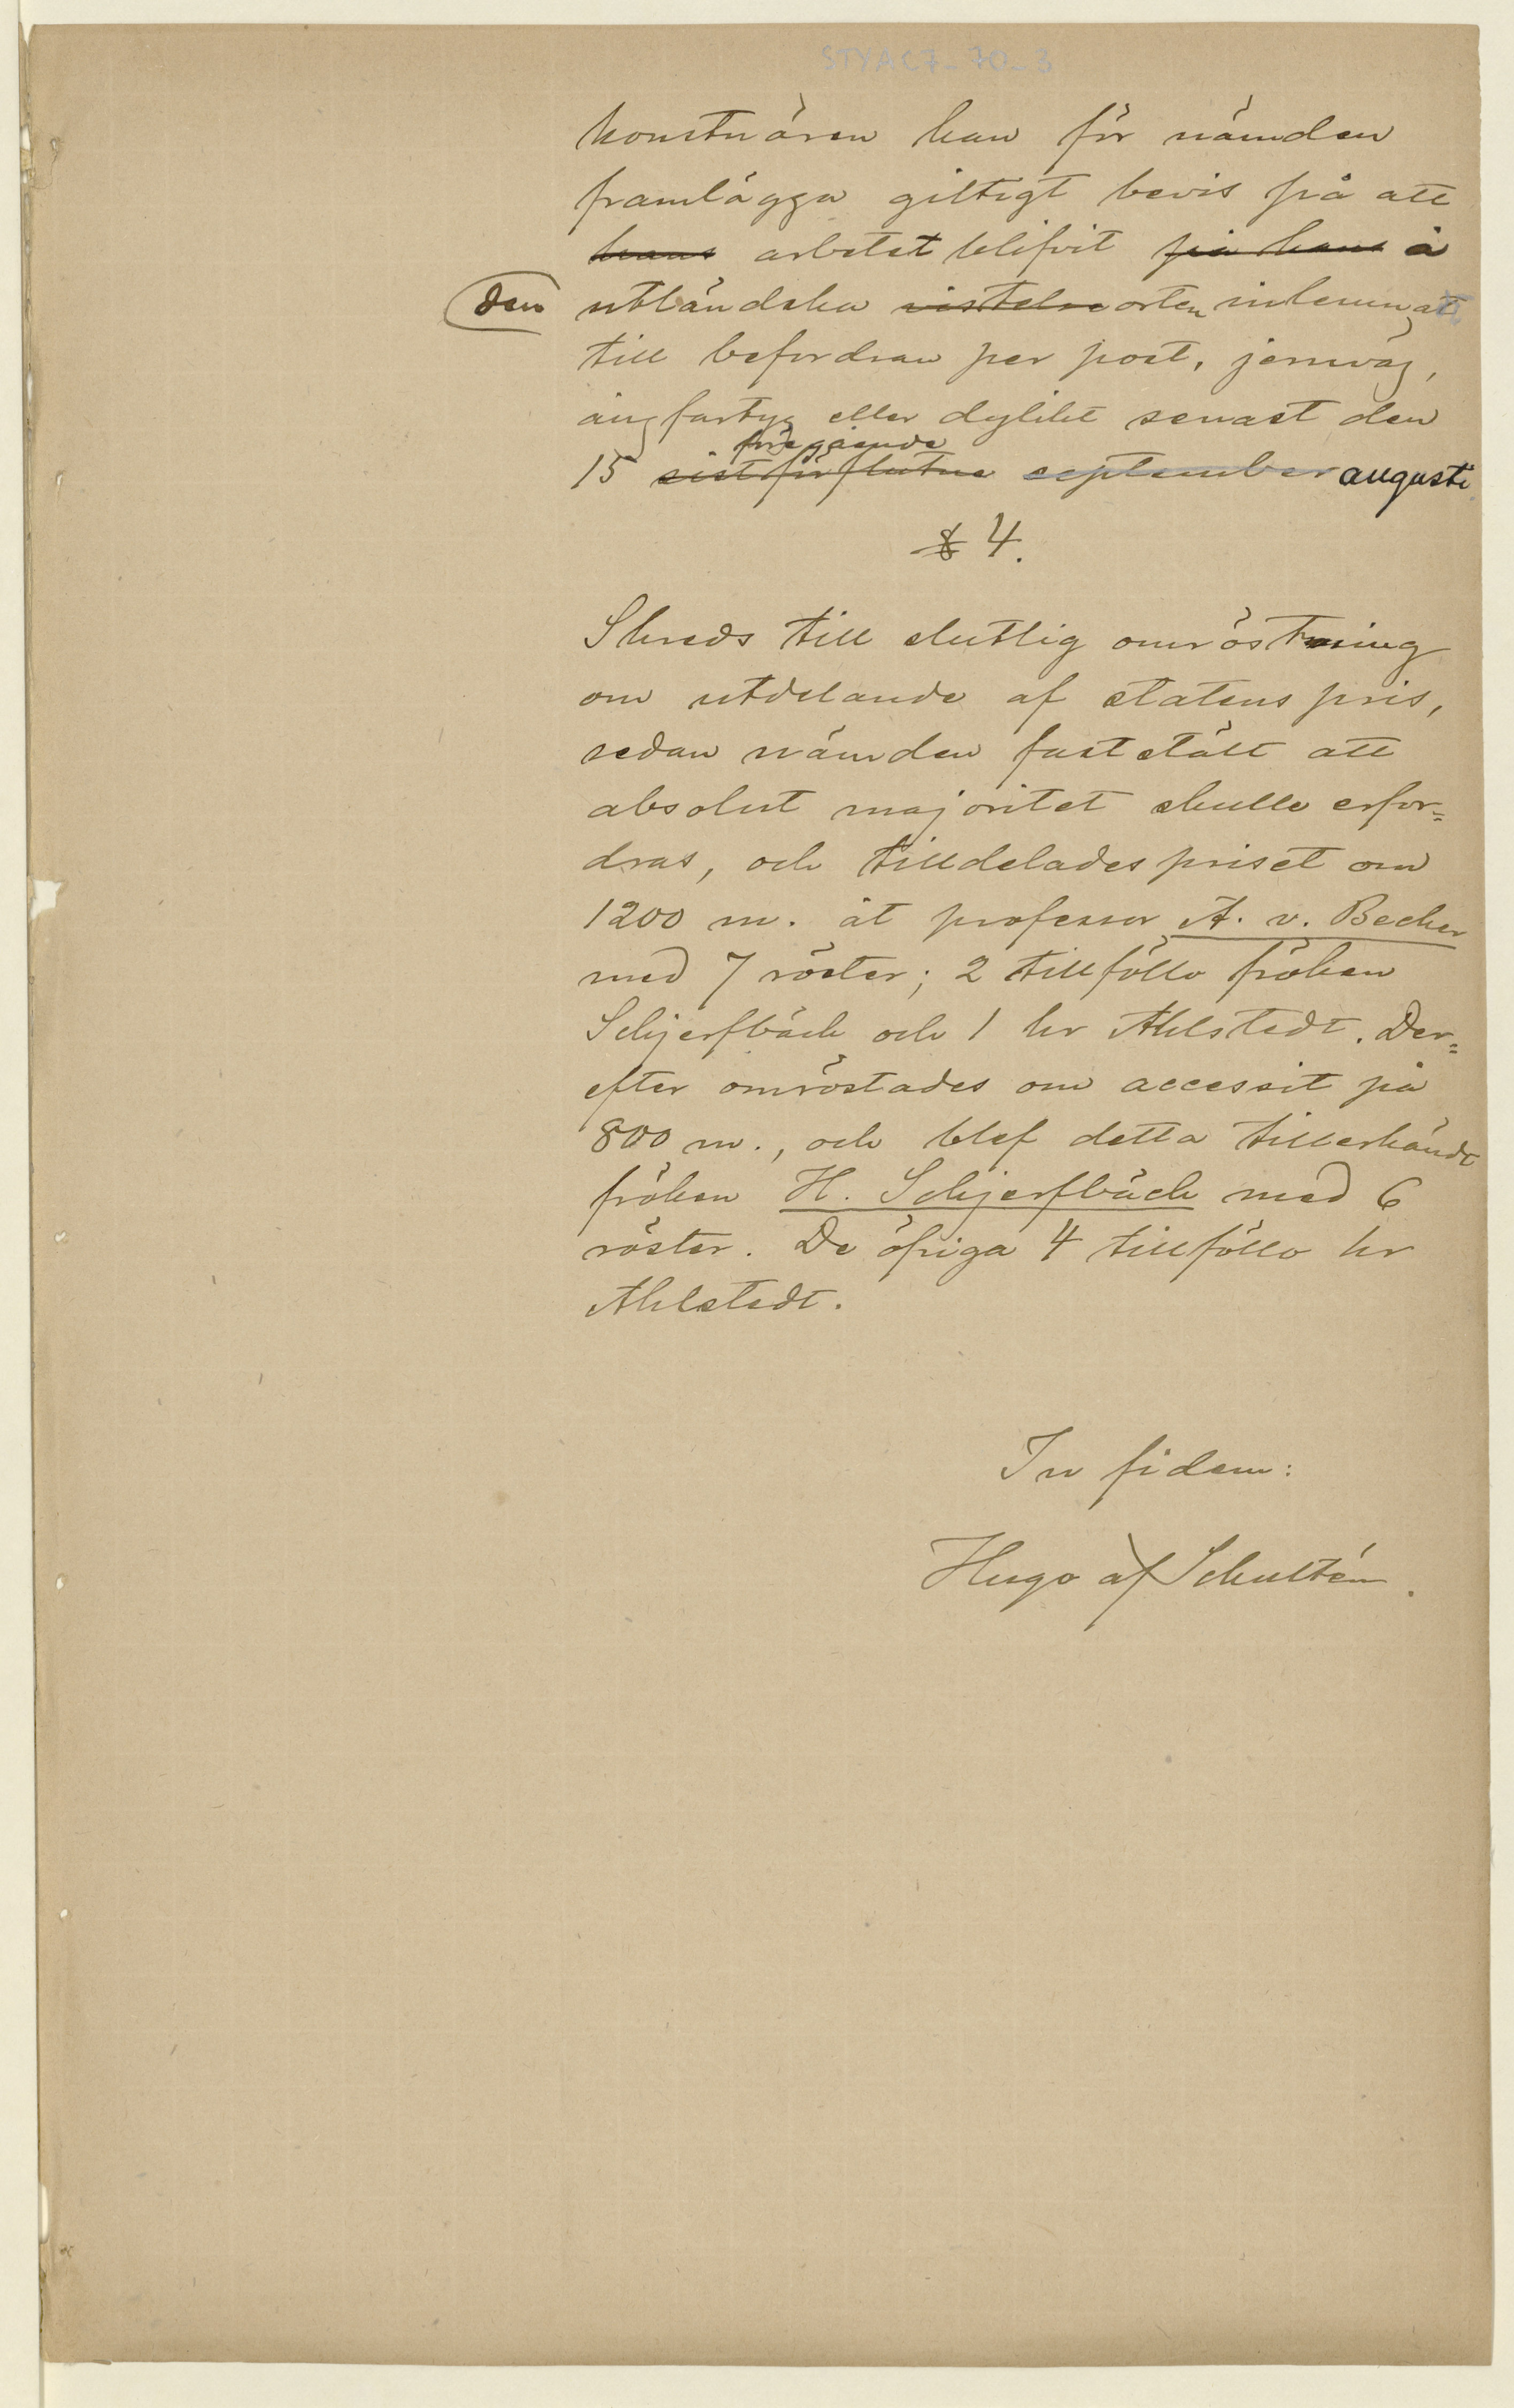 STYAC7_70_3
konstnären kan för nämden
framlägga giltigt bevis på att
hans arbetet blifvit på hans å
den utländska vistelseorten inlemnat
till befordran per post, jernväg,
ångfartyg eller dylikt senast den
föregående
15 sistförflutne september augusti
§ 4.
Skreds till slutlig omröstning
om utdelande af statens pris,
sedan nämden faststält att
absolut majoritet skulle erfor=
dras, och tilldelades priset om
1200 m. åt professor A. v. Becker
med 7 röster; 2 tillföllo fröken
Schjerfbäck och 1 hr Ahlstedt. Der=
efter omröstades om accessit på
800 m., och blef detta tillerkändt
fröken H. Schjerfbäck med 6
röster. De öfriga 4 tillföllo hr
Ahlstedt.
In fidem:
Hugo af Schultén.